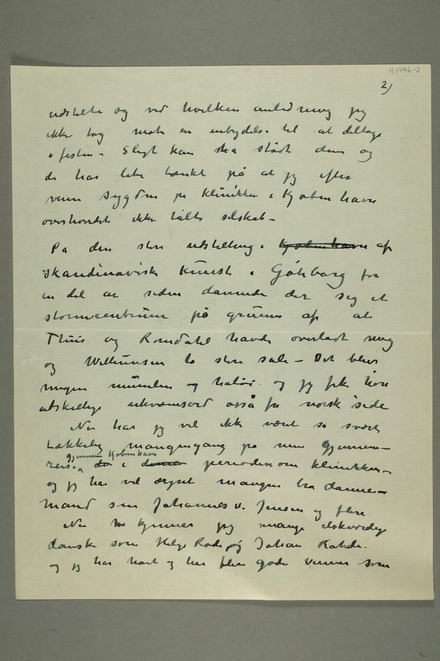 N 1796-2
2)
udstille og ved hvilken anledning jeg
ikke tog mod en indbydelse til at deltage
i festen – Sligt kan ha stødt dem og
de har ikke tænkt på at jeg efter
min sygdom på klinikken i Kjøbenhavn
overhovedet ikke tålte selskab –
På den store udstilling i Kjøbenhavn af
skandinavisk kunst i Gøteborg for
en del år siden dannede der sig et
stormcentrum på grunn af at
Thiis og Romdahl havde overladt mig
og Willumsen to store sale – Det blev
megen mumlen og halløi og jeg fik høre
adskellige ukvemsord også fra norsk side
Nu har jeg vel ikk været så svært
tækkelig mangengang på min gjennem-
gjennem Kjøbenhavn
reise da i denne perioden om klinikken –
og jeg har vel ærgret mangen bra danne-
mand som Johannes V. Jensen og flere
Nu kjenner jeg mange elskværdige
danske som Helge Rode og Johan Rohde.
og jeg har havt og har flere gode venner som